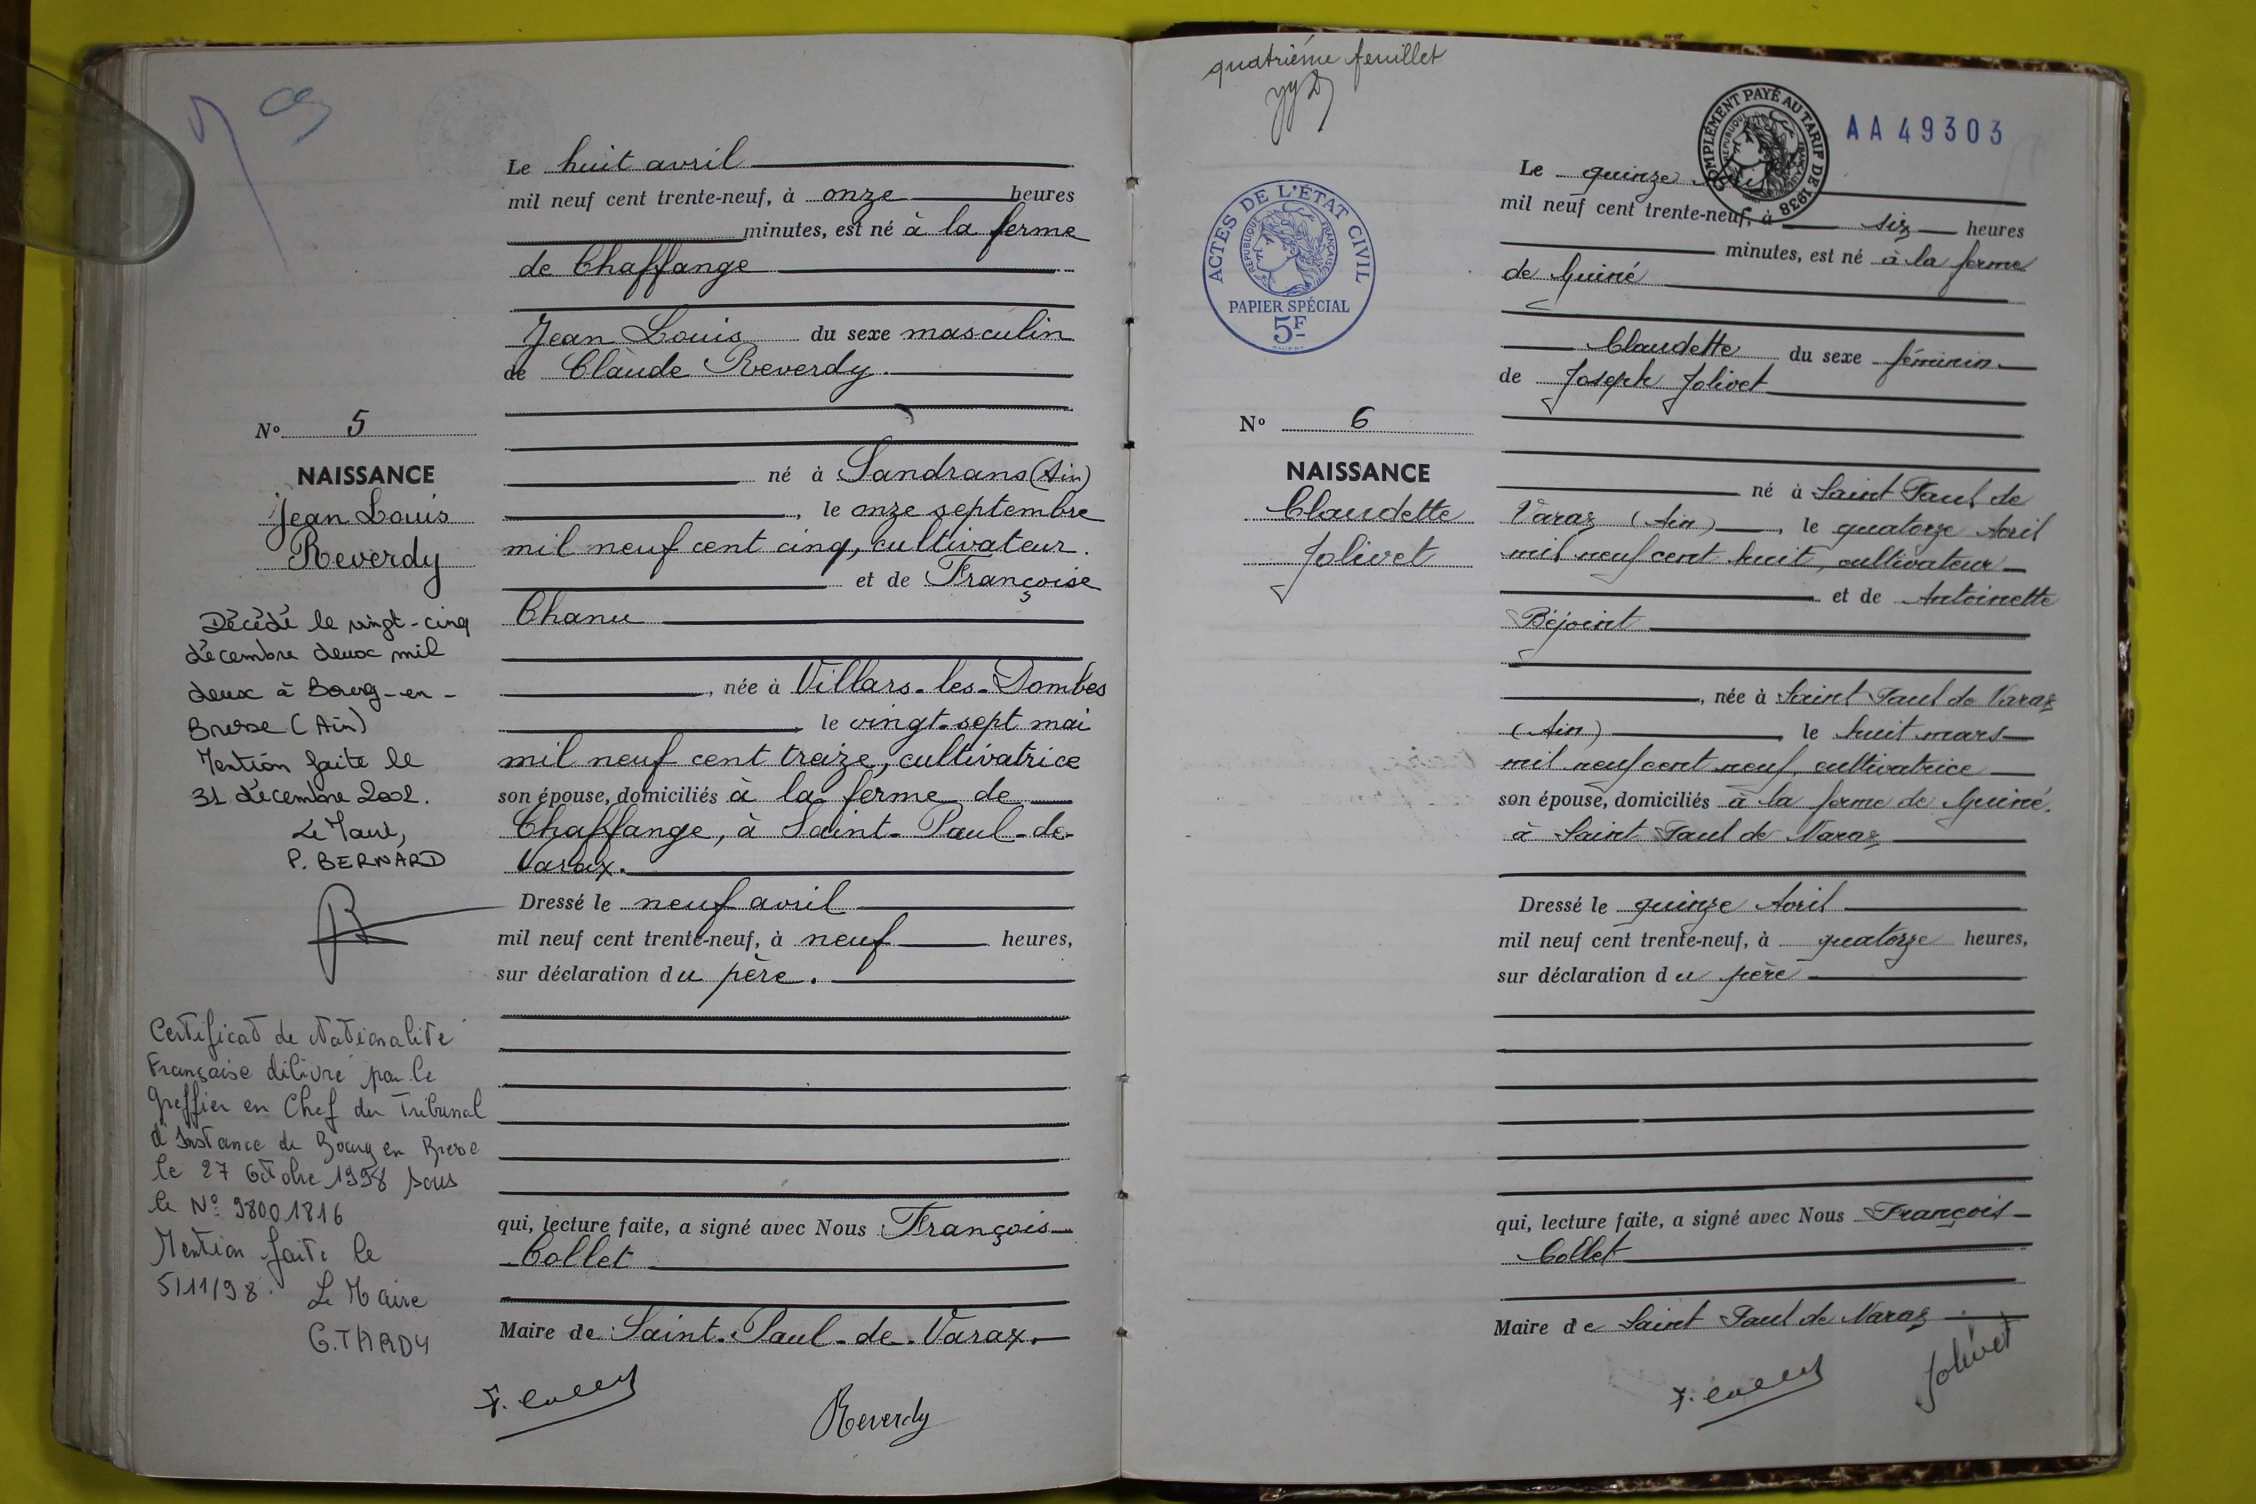 Le huit avril
mil neuf cent trente-neuf, à onze heures
minutes, est né à la ferme
de Chaffange
Jean Louis du sexe masculin
de Claude Reverdy.
N° 5
NAISSANCE
Jean Louis
Reverdy
né à Sandrans (Ain)
, le onze septembre
mil neuf cent cinq, cultivateur.
et de Françoise
Chanu
, née à Villars-les-Dombes
le vingt-sept mai
mil neuf cent treize, cultivatrice
son épouse, domiciliés à la ferme de
Chaffange, à Saint-Paul-de-
Varax.
Dressé le neuf avril
mil neuf cent trente-neuf, à neuf heures,
sur déclaration du père.
qui, lecture faite, a signé avec Nous François
Collet
Maire de Saint-Paul-de-Varax.
F. Collet
Reverdy
Décédé le vingt-cinq
décembre deux mil
deux à Bourg-en-
Bresse (Ain)
Mention faite le
31 décembre 2002.
Le Maire,
P. BERNARD
Certificat de Nationalité
Française délivré par le
Greffier en Chef du Tribunal
d'Instance de Bourg en Bresse
le 27 Octobre 1998 sous
le N° 98001816
Mention faite le
5/11/98. Le Maire
G. TARDY
quatriéme feuillet
COMPLÉMENT PAYÉ AU TARIF DE 1938
RÉPUBLIQUE FRANÇAISE
AA 49303
ACTES DE L'ÉTAT CIVIL
RÉPUBLIQUE FRANÇAISE
PAPIER SPÉCIAL
5F
Le quinze
mil neuf cent trente-neuf, à six heures
minutes, est né à la ferme
de Guiné
Claudette du sexe féminin
de Joseph Jolivet
N° 6
NAISSANCE
Claudette
Jolivet
né à Saint Paul de
Varax (Ain) , le quatorze Avril
mil neuf cent huit, cultivateur
et de Antoinette
Béjoint
, née à Saint Paul de Varax
(Ain) le huit mars
mil neuf cent neuf, cultivatrice
son épouse, domiciliés à la ferme de Guiné.
à Saint Paul de Varax
Dressé le quinze Avril
mil neuf cent trente-neuf, à quatorze heures,
sur déclaration du père
qui, lecture faite, a signé avec Nous François
Collet
Maire de Saint Paul de Varax
F. Collet
Jolivet